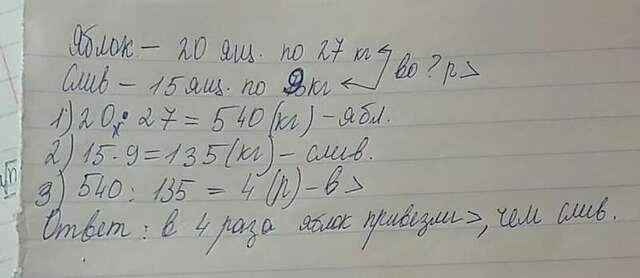 Яблок – 20 ящ. по 27 кг
Слив – 15 ящ. по 9 кг во ? р >
1) 20 · 27 = 540 (кг) – ябл.
2) 15 · 9 = 135 (кг) – слив.
3) 540 : 135 = 4 (р) – в >
Ответ: в 4 раза яблок привезли >, чем слив.